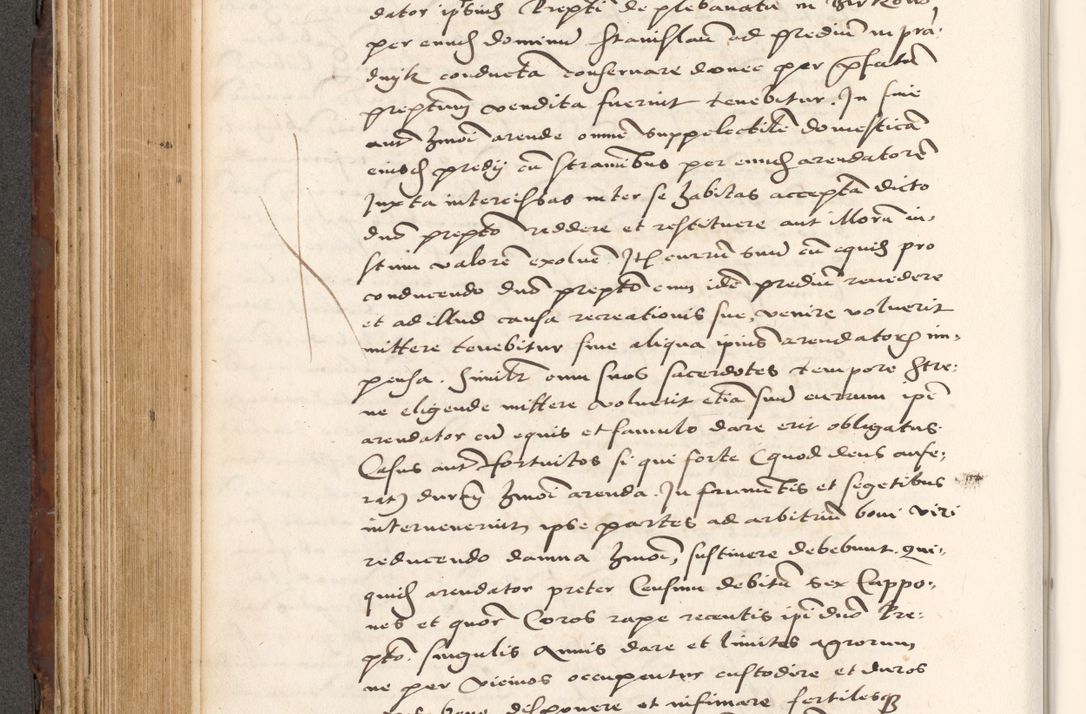 dator ipsius Prepti de plebanatu in
per eundē dominū Stanislaū ad prediū in pra-
dnyk conducta conservare donec per pfatū
preptum vendita fuerint tenebitur. In fine
aut hmōi arende omnē suppelectilē domesticā
eiusdē predij cū stramībus per eundē arendatorē
Juxta intercisas inter se habitas acceptā dicto
dno prepto reddere et restituere aut illorū iu-
stum valorē exoluē Itē currū suū cū equis pro
conducendo dno prepto cum idē prediū revidere
et ad illud causa recreationis sue, venire voluerit
mittere tenebitur sine aliqua ipius arendatorē im-
pensa. Similr cum suos sacerdotes tempore Stre-
ne eligende mittere voluerit etiā suū currum ipē
arendator cū equis et famulo dare erit obligatus.
Casus aut fortuitos si qui forte (quod deus aufe-
rat) durān hmōi arenda. In frumētis et segetibus
intervenerint ipse partes ad arbitriū boni viri
reducendo damna hmōi, sustinere debebunt. Qui-
quidē arendator preter Censum debitū sex Cappo-
nes et quōr Coros rape recentis ipi dno Pre-
pto. singulis Annis dare et limites agrorum
ne per vicinos occupentur custodire et duros
bene disponere et infimare fertilesqꝫ